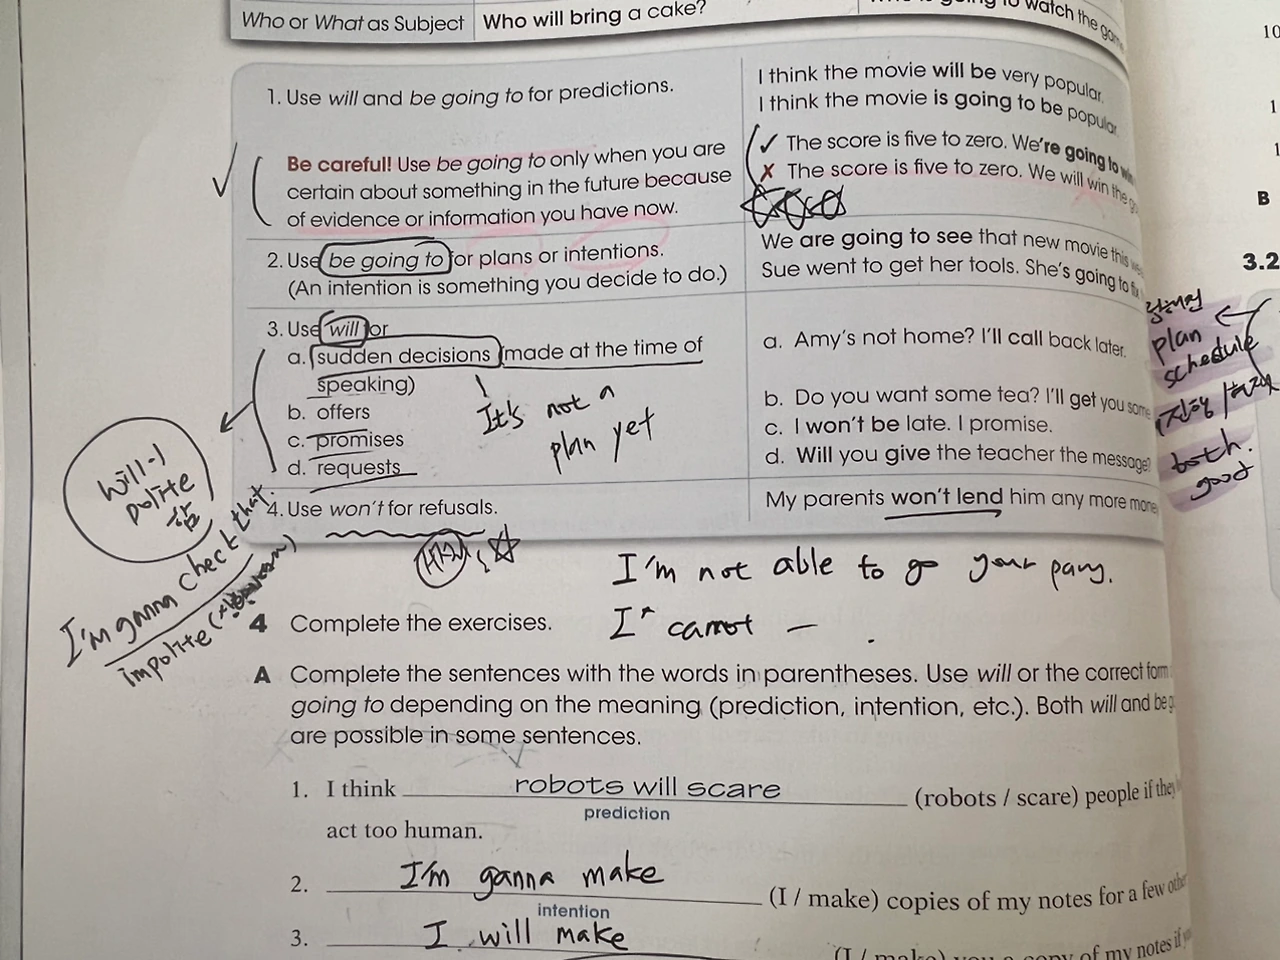 Who or What as Subject
Who will bring a cake?
to watch the
1. Use will and be going to for predictions.
I think the movie will be very popular.
I think the movie is going to be popular
✓
Be careful! Use be going to only when you are
certain about something in the future because
of evidence or information you have now.
✓ The score is five to zero. We're going to
✗ The score is five to zero. We will win the
2. Use be going to for plans or intentions.
(An intention is something you decide to do.)
We are going to see that new movie this
Sue went to get her tools. She's going to
3. Use will for
a. sudden decisions (made at the time of
speaking)
b. offers
c. promises
d. requests
It's not a
plan yet
a. Amy's not home? I'll call back later.
b. Do you want some tea? I'll get you some
c. I won't be late. I promise.
d. Will you give the teacher the message?
4. Use won't for refusals.
My parents won't lend him any more
plan
schedule
both.
good
will-1
polite
I'm ganna check that.
impolite
I'm not able to go your pary.
I cannot — .
4 Complete the exercises.
A Complete the sentences with the words in parentheses. Use will or the correct form
going to depending on the meaning (prediction, intention, etc.). Both will and be
are possible in some sentences.
1. I think robots will scare (robots / scare) people if they
prediction
act too human.
2. I'm ganna make (I / make) copies of my notes for a few
intention
3. I will make
copy of my notes if
10
1
1
B
3.2